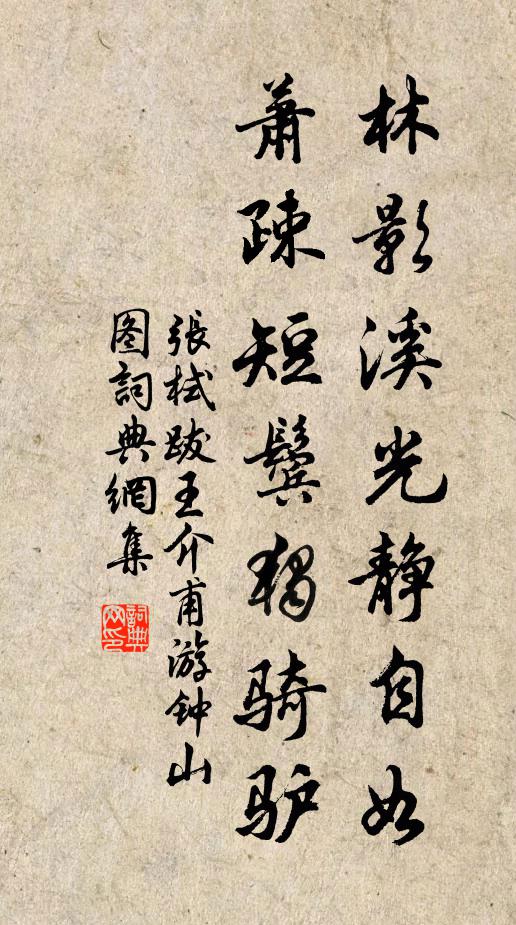 林影溪光静自如
萧疎短鬓独骑驴
張栻跋王介甫游钟山
图詞典網集
詞典网印